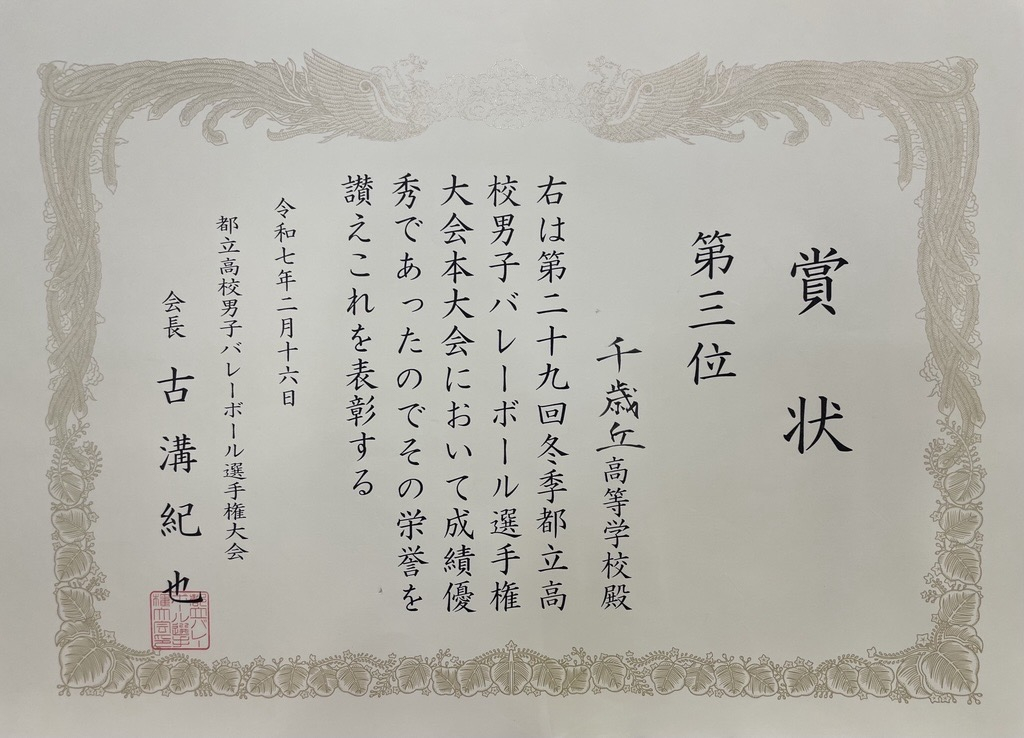 賞状
第三位
千歳丘高等学校殿
右は第二十九回冬季都立高
校男子バレーボール選手権
大会本大会において成績優
秀であったのでその栄誉を
讃えこれを表彰する
令和七年二月十六日
都立高校男子バレーボール選手権大会
会長 古溝紀也